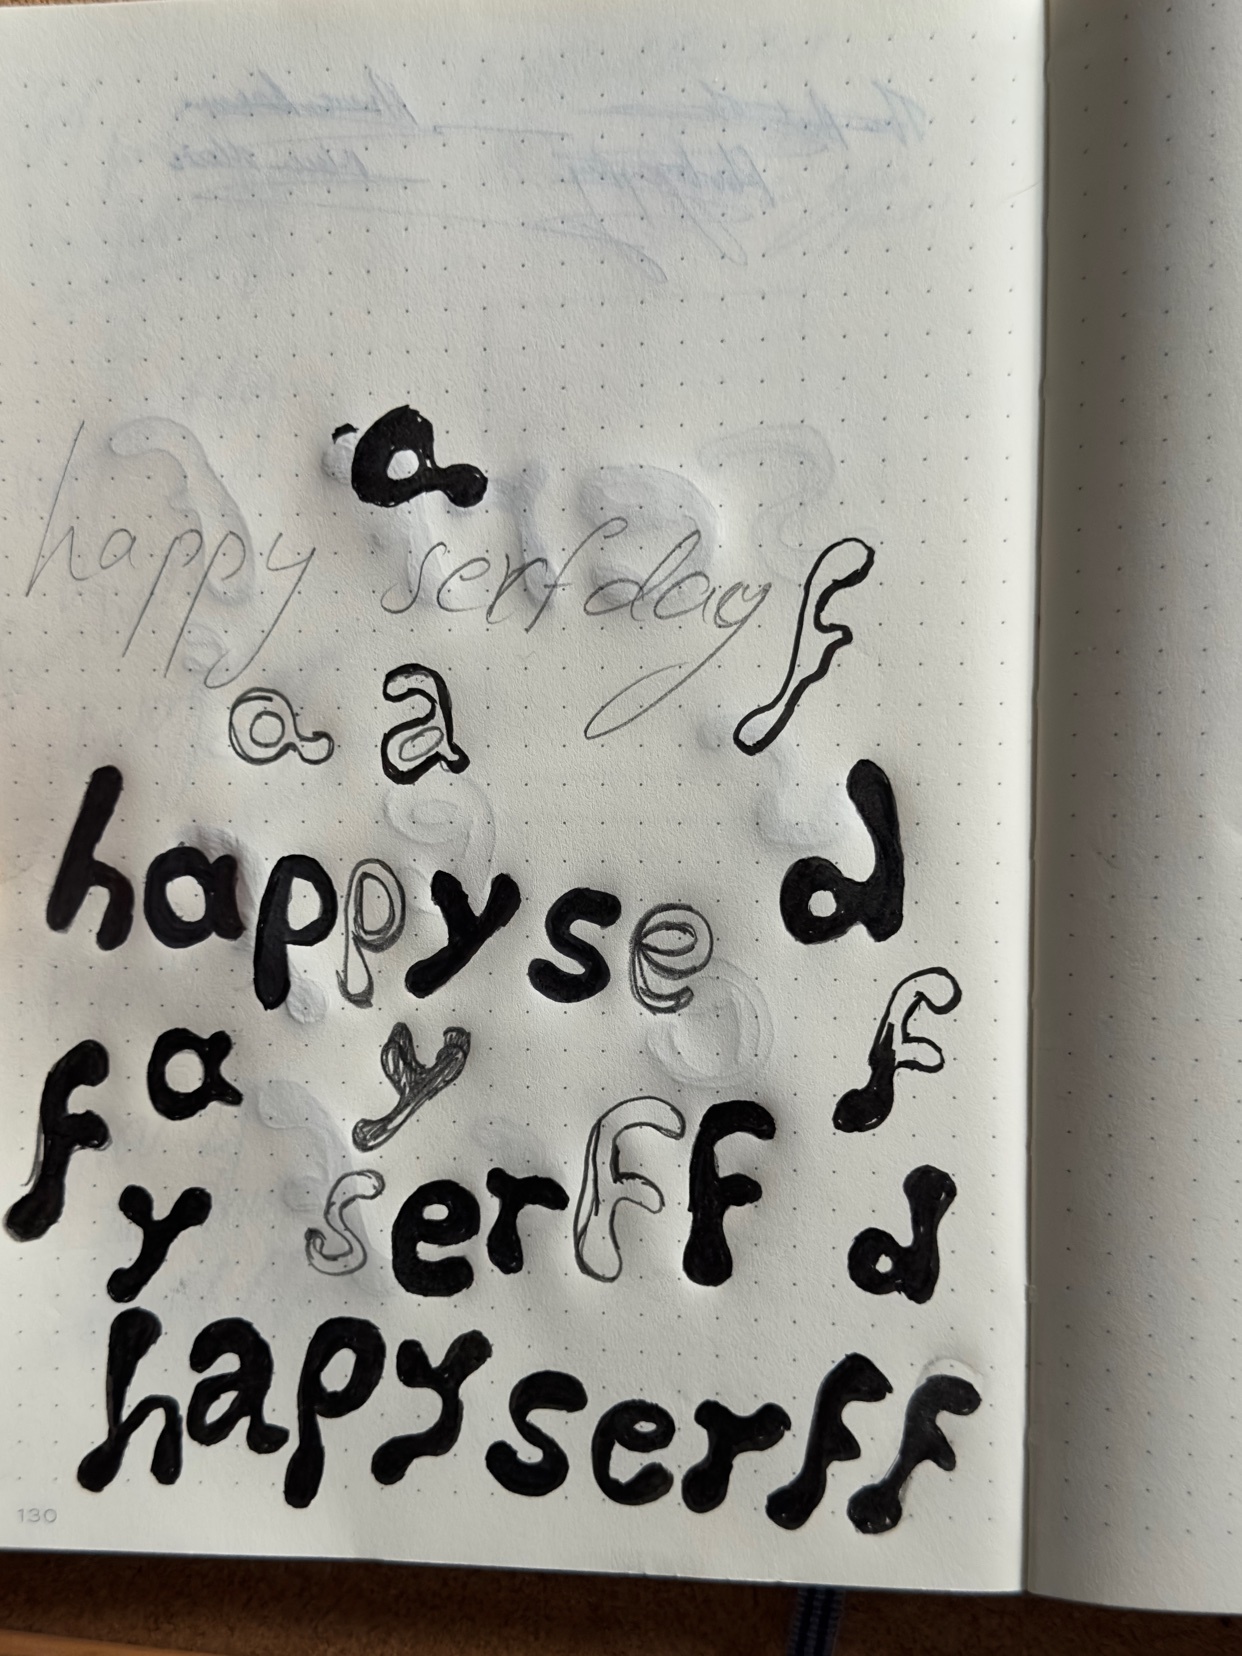 a
happy serfday f
a a
happyse d
f a y f
y serff d
hapyserff
130